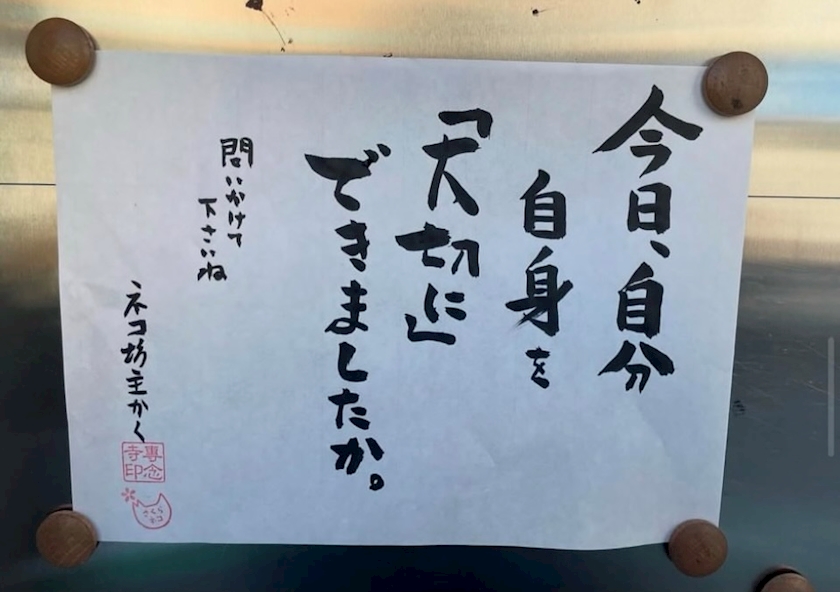 今日、自分
自身を
「大切に」
できましたか。
問いかけて
下さいね
ネコ坊主かく
専念
寺印
さくら
ネコ